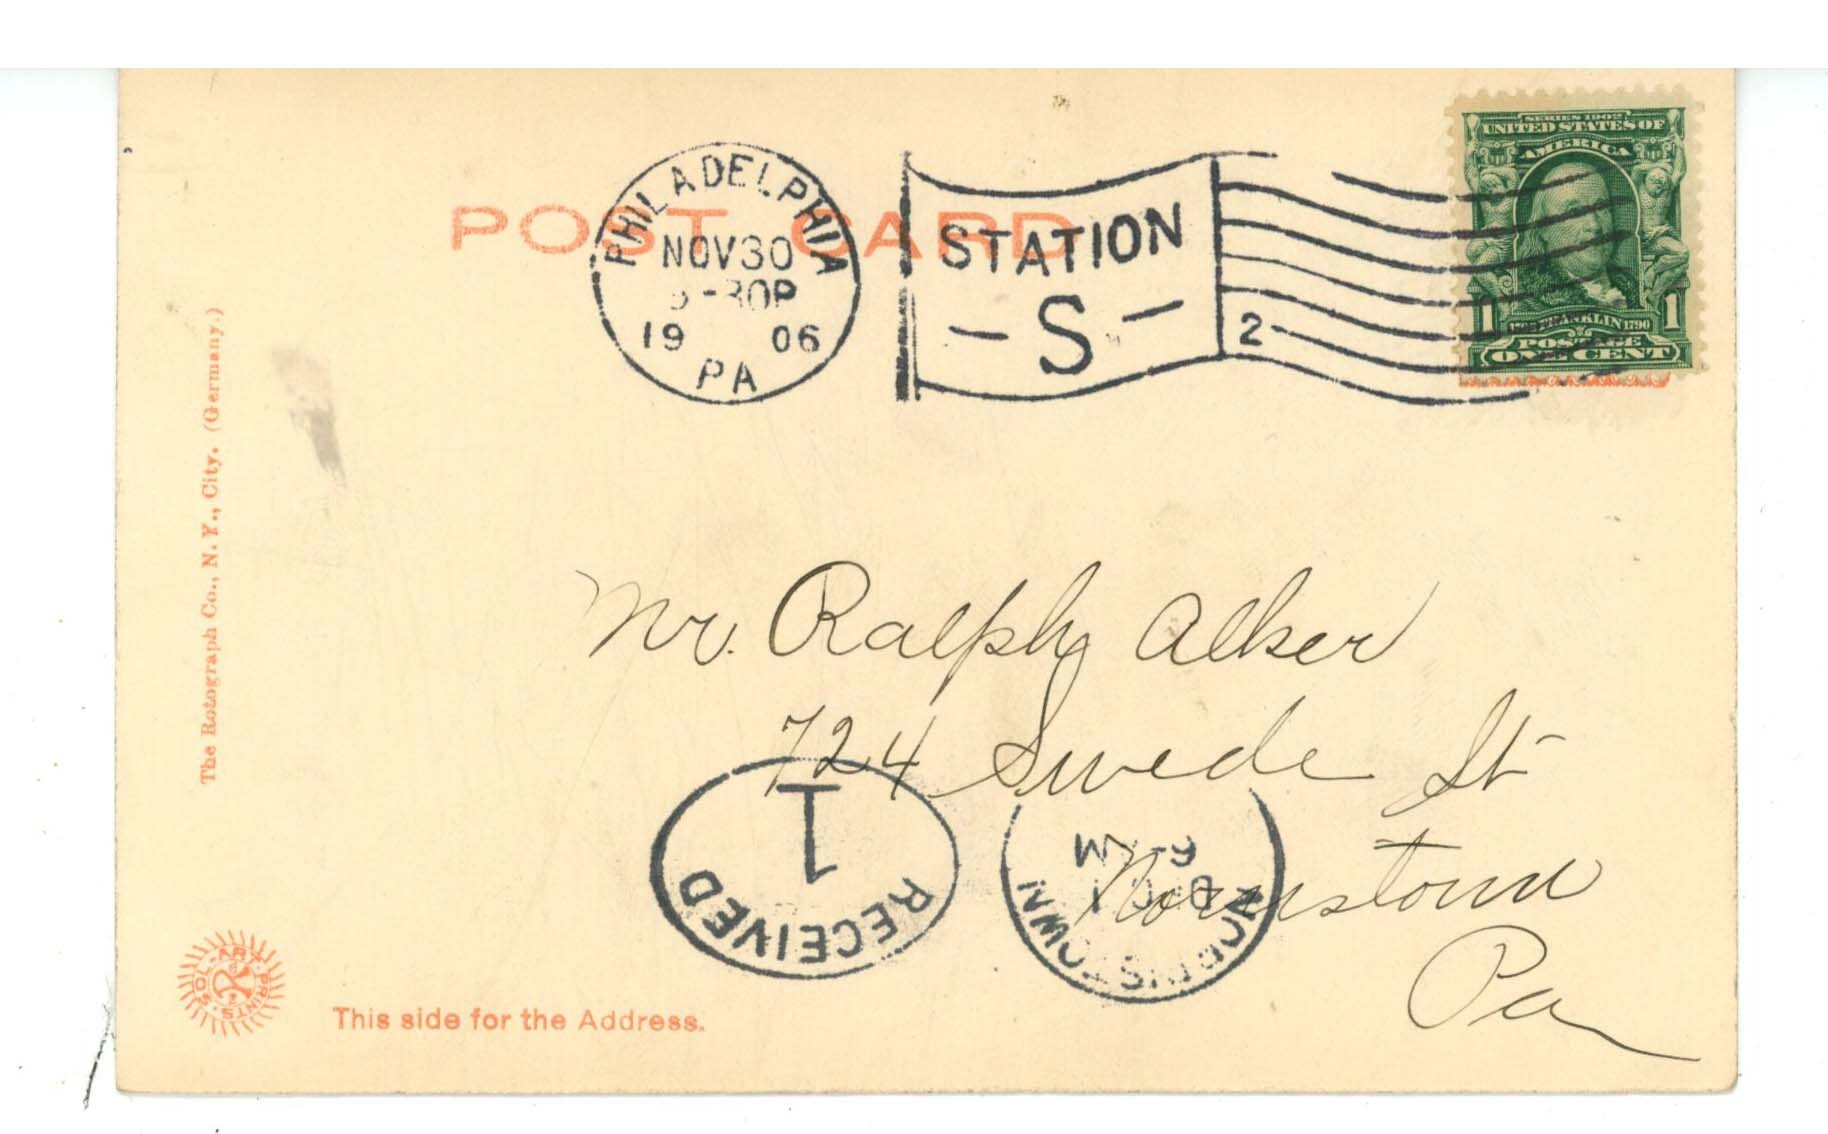 POST CARD
PHILADELPHIA
NOV30
-30P
19 06
PA
STATION
-S-
2
SERIES 1902
UNITED STATES OF
AMERICA
1 FRANKLIN 1790 1
POSTAGE
ONE CENT
The Rotograph Co., N. Y., City. (Germany.)
Mr. Ralph Alker
724 Swede St
Norristown
Pa
RECEIVED
1
NORRISTOWN
DEC 1
6- AM
SOL-ART PRINTS
This side for the Address.